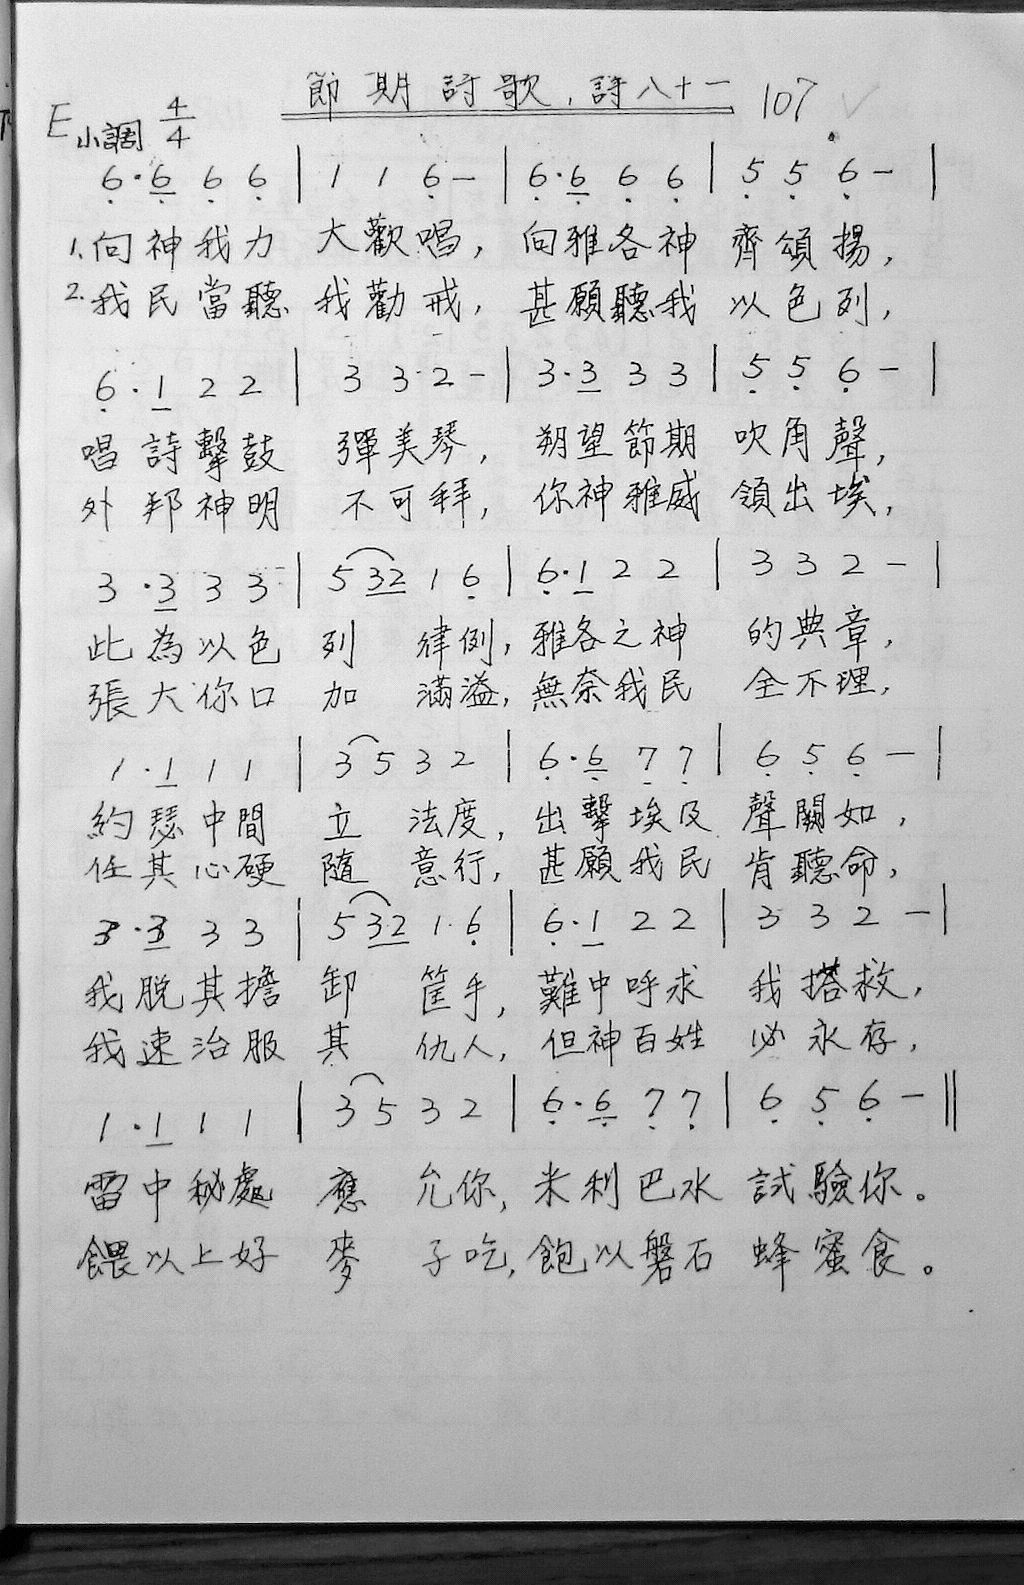 節期詩歌，詩八十一 107
E小調 4/4
6·6 6 6 | 1 1 6 — | 6·6 6 6 | 5 5 6 — |
1.向神我力 大歡唱，向雅各神 齊頌揚，
2.我民當聽 我勸戒，甚願聽我 以色列，
6·1 2 2 | 3 3 2 — | 3·3 3 3 | 5 5 6 — |
唱詩擊鼓 彈美琴，朔望節期 吹角聲，
外邦神明 不可拜，你神雅威 領出埃，
3·3 3 3 | 5 32 1 6 | 6·1 2 2 | 3 3 2 — |
此為以色 列 律例，雅各之神 的典章，
張大你口 加 滿溢，無奈我民 全不理，
1·1 1 1 | 3 5 3 2 | 6·6 7 7 | 6 5 6 — |
約瑟中間 立 法度，出擊埃及 聲闕如，
任其心硬 隨 意行，甚願我民 肯聽命，
3·3 3 3 | 5 32 1 6 | 6·1 2 2 | 3 3 2 — |
我脫其擔 卸 筐手，難中呼求 我搭救，
我速治服 其 仇人，但神百姓 必永存，
1·1 1 1 | 3 5 3 2 | 6·6 7 7 | 6 5 6 — ||
雷中秘處 應 允你，米利巴水 試驗你。
餵以上好 麥 子吃，飽以磐石 蜂蜜食。